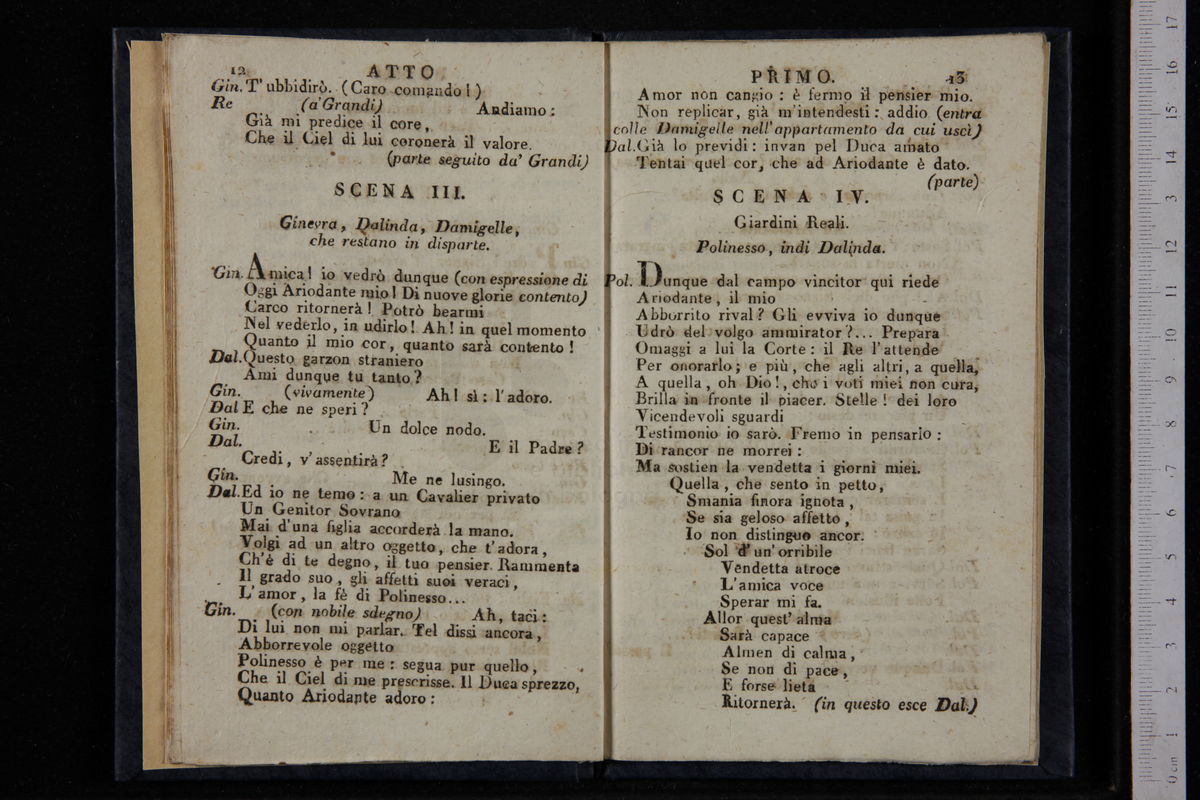 12 ATTO
Gin. T' ubbidirò. (Caro comando!)
Re (a' Grandi) Andiamo:
Già mi predice il core,
Che il Ciel di lui coronerà il valore.
(parte seguito da' Grandi)
SCENA III.
Ginevra, Dalinda, Damigelle,
che restano in disparte.
Gin. Amica! io vedrò dunque (con espressione di
Oggi Ariodante mio! Di nuove glorie contento)
Carco ritornerà! Potrò bearmi
Nel vederlo, in udirlo! Ah! in quel momento
Quanto il mio cor, quanto sarà contento!
Dal. Questo garzon straniero
Ami dunque tu tanto?
Gin. (vivamente) Ah! sì: l'adoro.
Dal E che ne speri?
Gin. Un dolce nodo.
Dal. E il Padre?
Credi, v'assentirà?
Gin. Me ne lusingo.
Dal. Ed io ne temo: a un Cavalier privato
Un Genitor Sovrano
Mai d'una figlia accorderà la mano.
Volgi ad un altro oggetto, che t'adora,
Ch'è di te degno, il tuo pensier. Rammenta
Il grado suo, gli affetti suoi veraci,
L'amor, la fè di Polinesso...
Gin. (con nobile sdegno) Ah, taci:
Di lui non mi parlar. Tel dissi ancora,
Abborrevole oggetto
Polinesso è per me: segua pur quello,
Che il Ciel di me prescrisse. Il Duca sprezzo,
Quanto Ariodante adoro:
PRIMO. 13
Amor non cangio: è fermo il pensier mio.
Non replicar, già m'intendesti: addio (entra
colle Damigelle nell'appartamento da cui uscì)
Dal. Già lo previdi: invan pel Duca amato
Tentai quel cor, che ad Ariodante è dato.
(parte)
SCENA IV.
Giardini Reali.
Polinesso, indi Dalinda.
Pol. Dunque dal campo vincitor qui riede
Ariodante, il mio
Abborrito rival? Gli evviva io dunque
Udrò del volgo ammirator?... Prepara
Omaggi a lui la Corte: il Re l'attende
Per onorarlo; e più, che agli altri, a quella,
A quella, oh Dio!, che i voti miei non cura,
Brilla in fronte il piacer. Stelle! dei loro
Vicendevoli sguardi
Testimonio io sarò. Fremo in pensarlo:
Di rancor ne morrei:
Ma sostien la vendetta i giorni miei.
Quella, che sento in petto,
Smania finora ignota,
Se sia geloso affetto,
Io non distinguo ancor.
Sol d'un'orribile
Vendetta atroce
L'amica voce
Sperar mi fa.
Allor quest'alma
Sarà capace
Almen di calma,
Se non di pace,
E forse lieta
Ritornerà. (in questo esce Dal.)
0 cm 1 2 3 4 5 6 7 8 9 10 11 12 13 14 15 16 17